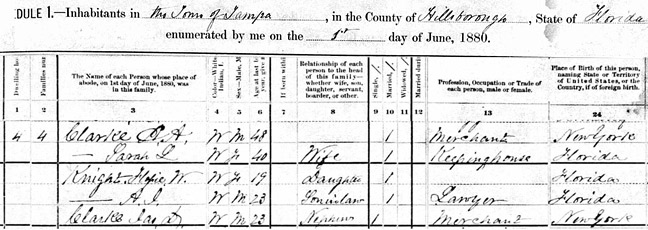 DULE 1.—Inhabitants in the Town of Tampa, in the County of Hillsborough, State of Florida
enumerated by me on the 1st day of June, 1880.
Dwelling ho
Families num
The Name of each Person whose place of abode, on 1st day of June, 1880, was in this family.
Color—White,
Indian, I.
Sex—Male, M
Age at last b
year, give
If born withi
Relationship of each person to the head of this family—whether wife, son, daughter, servant, boarder, or other.
Single,
Married,
Widowed,
Married durin
Profession, Occupation or Trade of each person, male or female.
Place of Birth of this person, naming State or Territory of United States, or the Country, if of foreign birth.
1 2 3 4 5 6 7 8 9 10 11 12 13 24
4 4 Clarke A. W M 48 1 Merchant New York
— Sarah W F 40 Wife 1 Keeping house Florida
Knight W. W F 19 Daughter 1 Florida
— W M 23 Son in law 1 Lawyer Florida
Clarke W M 23 Nephew 1 Merchant New York